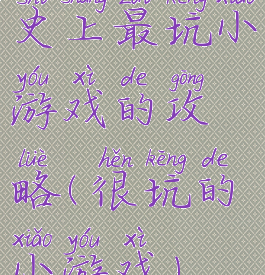 shǐ shàng zuì kēng xiǎo
史上最坑小
yóu xì de gōng
游戏的攻
lüè hěn kēng de
略(很坑的
xiǎo yóu xì
小游戏)